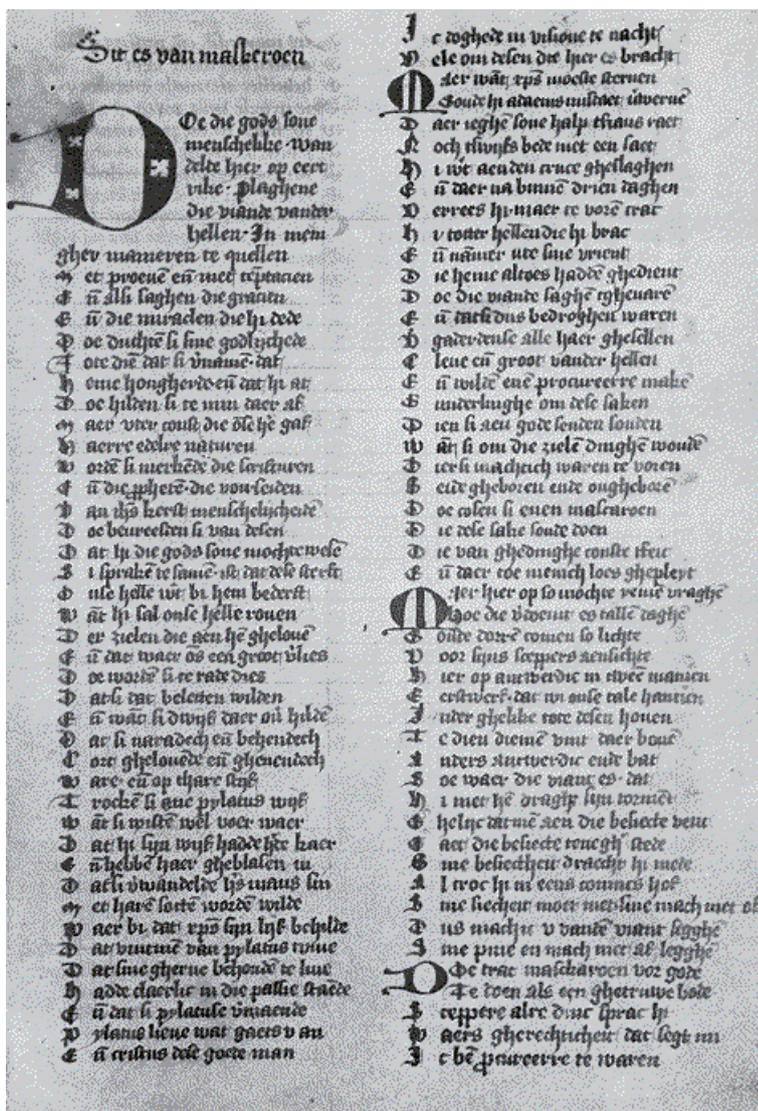 Dit es van maskeroen
Doe die gods sone
menschelike wan
delde hier op eert
rike· Plaghene
die viande vander
hellen· In meni
gher manieren te quellen
Met proeuē eñ met tēptacien
Eñ alsi saghen die gracien
Eñ die miraclen die hi dede
Doe duchtē si sine godlijchede
Tote diē dat si v̄namē· dat
Heme hongherde eñ dat hi at
Doe hilden si te min daer af
Maer vter const die ōse h̓e gaf
Haerre edelre naturen
Wordē si merkēde die scrifturen
Eñ die ꝓphetē· die vorseiden
Van ihs̄ kerst menschelijcheidē
Doe vreesden si van desen
Dat hi die gods sone mochte wesē
Si sprakē te samē· ist dat dese sterft
Onse helle wt bi hem bederft
Wāt hi sal onse helle rouen
Der zielen die aen hē ghelouē
Eñ dat waer ōs een groot v̓lies
Doe wordē si te rade dies
Datsi dat beletten wilden
Eñ wāt si dwijf daer ou hildē
Dat si naradech eñ behendech
Cort ghelouēde eñ ghenendech
Ware· eñ op thare stijf
Trockē si ane pylatus wijf
Wāt si wistē wel voer waer
Dat hi sijn wijf hadde h̓te kaer
Eñ hebbē haer gheblasen in
Datsi v̓wandelde h̓s mans sin
Met harē sortē worden wilde
Waer bi dat xp̄s sijn lijf behilde
Dat vintmē van pylatus wiue
Datsine gherne behoudē te liue
Hadde claerlic in die passie staēde
Eñ dat si pylatuse v̓maende
Pylatus lieue wat gaets v an
Eñ cristus dese goede man
Ic doghede in visione te nacht
Vele om desen die hier es bracht
Maer wāt xp̄s moeste steruen
Soude hi adaems misdaet v̓weruē
Daer ieghē sone halp thaus raet
Noch twijfs bede niet een saet
Hi wt aenden cruce gheslaghen
Eñ daer na binnē drien daghen
Verrees hi· maer te vorē trat
Hi totter hellen die hi brac
Eñ nāmer ute sine vrient
Die heme altoes haddē ghedient
Doe die viande saghē tgheuarē
Eñ datsi dus bedroghen waren
Vgaderdense alle haer ghesellen
Cleue eñ groot vander hellen
Eñ wildē enē procureerre makē
Sunderlinghe om dese saken
Dien si aen gode senden souden
Wāt si om die zielē dinghē woudē
Diersi machtich waren te voren
Beide gheboren ende ongheborē
Doe cosen si enen mascaroen
Die dese sake soude doen
Die van ghedinghe conste t'feit
Eñ daer toe menich loes ghepleyt
Maer hier op so mochte yemē vraghē
Hoe die v̓doemt es tallē daghē
Soude dorrē comen so lichte
Voor sijns sceppers aensichte
Hier op antwerdic in tweē maniēn
Eerstwerf· dat wi onse tale hantiēn
Inder ghelike tote desen houen
Te dien diemē vint daer bouē
Anders antwerdic ende bat
Soe waer die viant es· dat
Hi met hē draghꝫ sijn tormēt
Ghelijc datmē aen die beliecte vent
Waer die beliecte toueghꝫ stede
Sine beliectheit draecht hi mede
Al troc hi in eens conincs hof
Sine siecheit moet niet sine mach niet of
Dus machic v vandē viant segghē
Sine pine en mach niet af legghē
Doe trat mascharoen vor gode
Te doen als een ghetruwe bode
Sceppere alre dinc sprac hi
Waers gherechticheit dat segt mi
Ic bē ꝓcureerre te waren